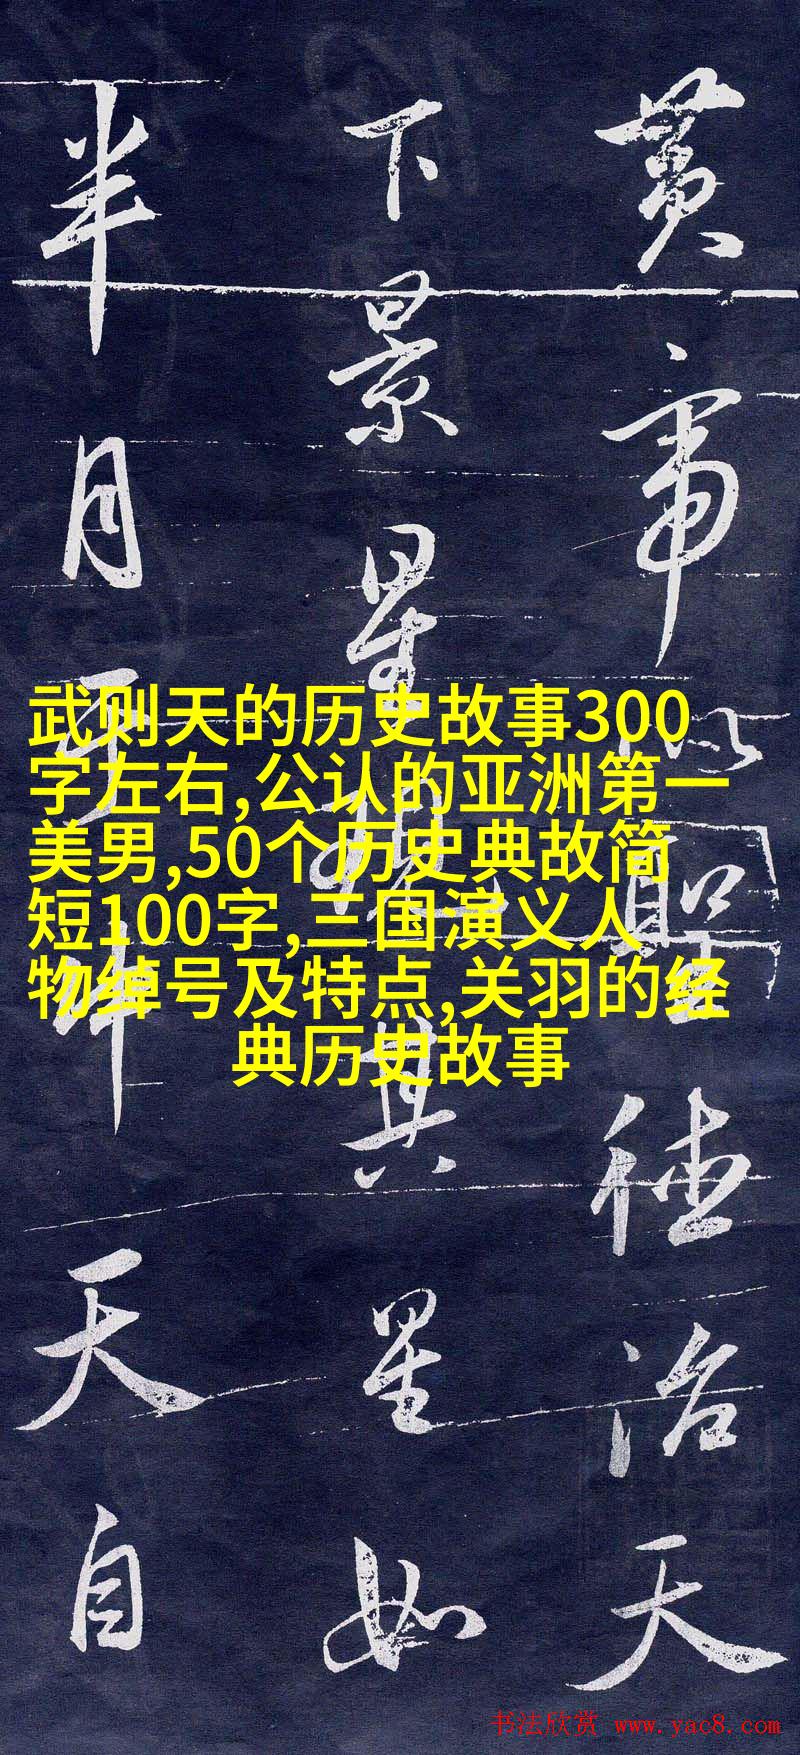 黄帝以聖德治天
下景星現其星如
半月天自
武则天的历史故事300
字左右,公认的亚洲第一
美男,50个历史典故简
短100字,三国演义人
物绰号及特点,关羽的经
典历史故事
书法欣赏 www.yac8.com